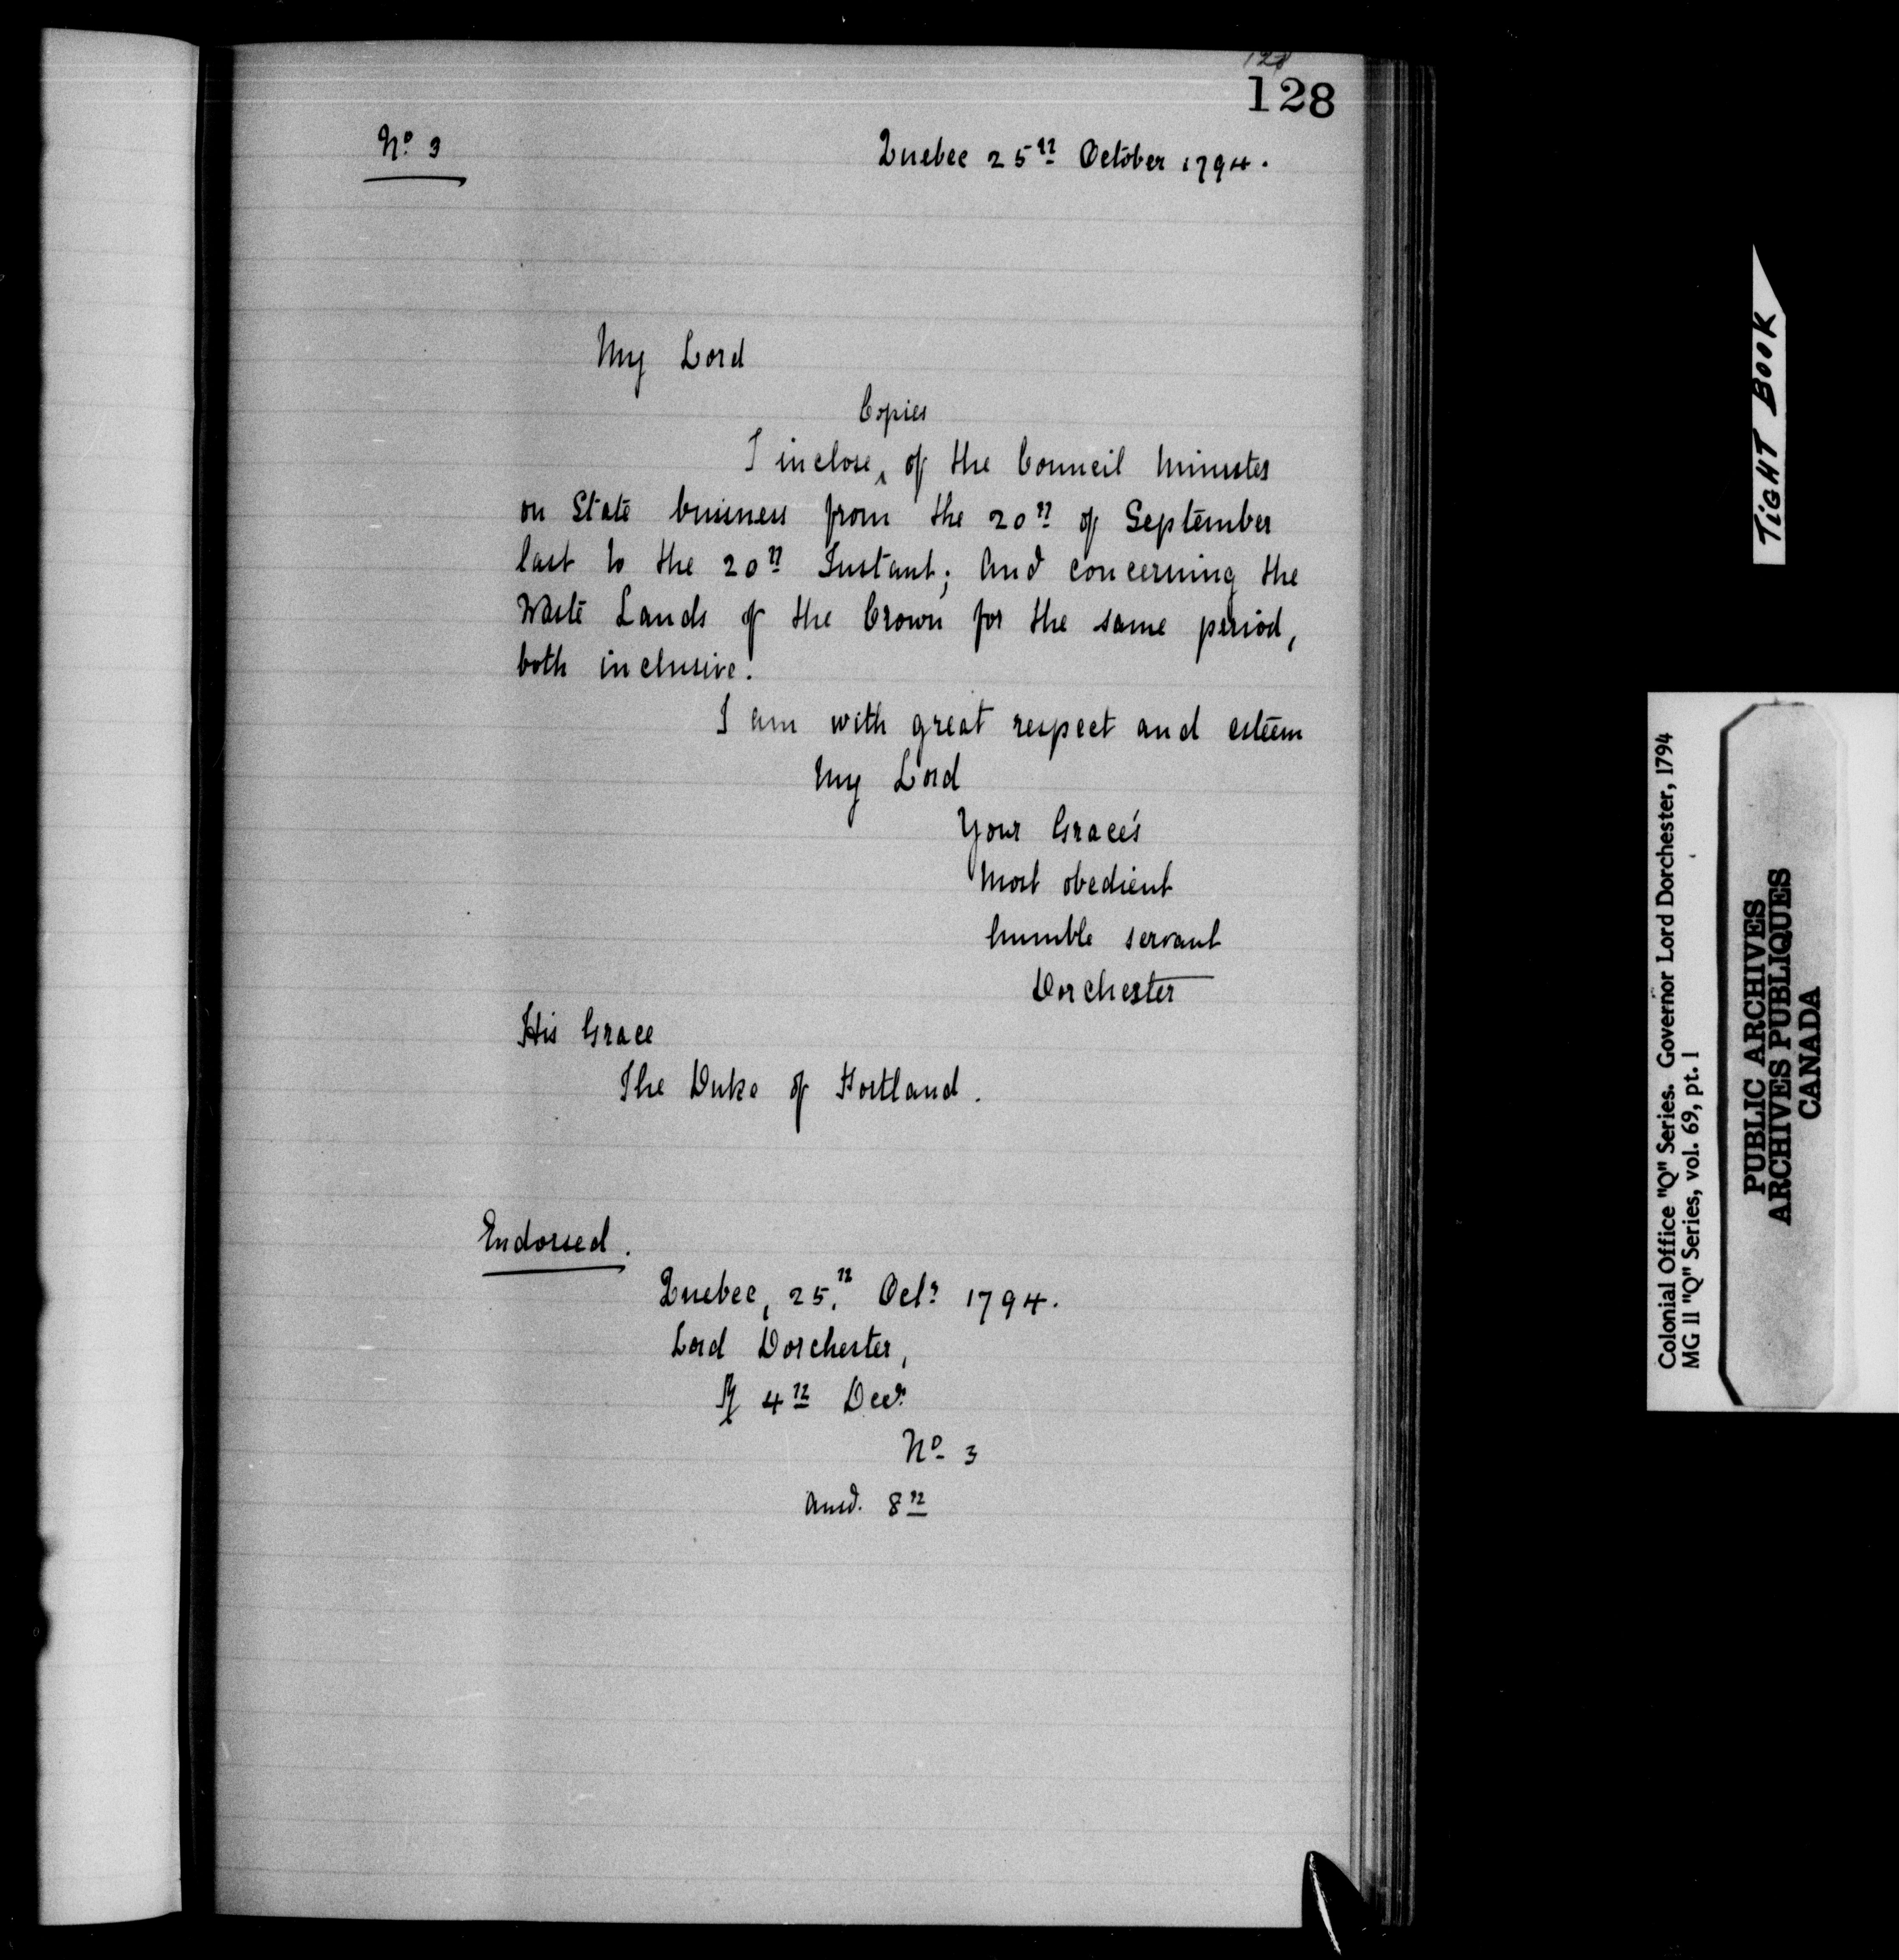 128
128
No. 3
Quebec 25th October 1794.
My Lord
Copies
I inclose ^ of the Council Minutes
on State business from the 20th of September
last to the 20th Instant; And concerning the
Waste Lands of the Crown for the same period,
both inclusive.
I am with great respect and esteem
My Lord
Your Grace's
Most obedient
humble servant
Dorchester
His Grace
The Duke of Portland.
Endorsed.
Quebec, 25.th Octr 1794.
Lord Dorchester,
R 4th Decr.
No 3
Ansd. 8th
TIGHT BOOK
Colonial Office "Q" Series. Governor Lord Dorchester, 1794
MG 11 "Q" Series, vol. 69, pt. 1
PUBLIC ARCHIVES
ARCHIVES PUBLIQUES
CANADA